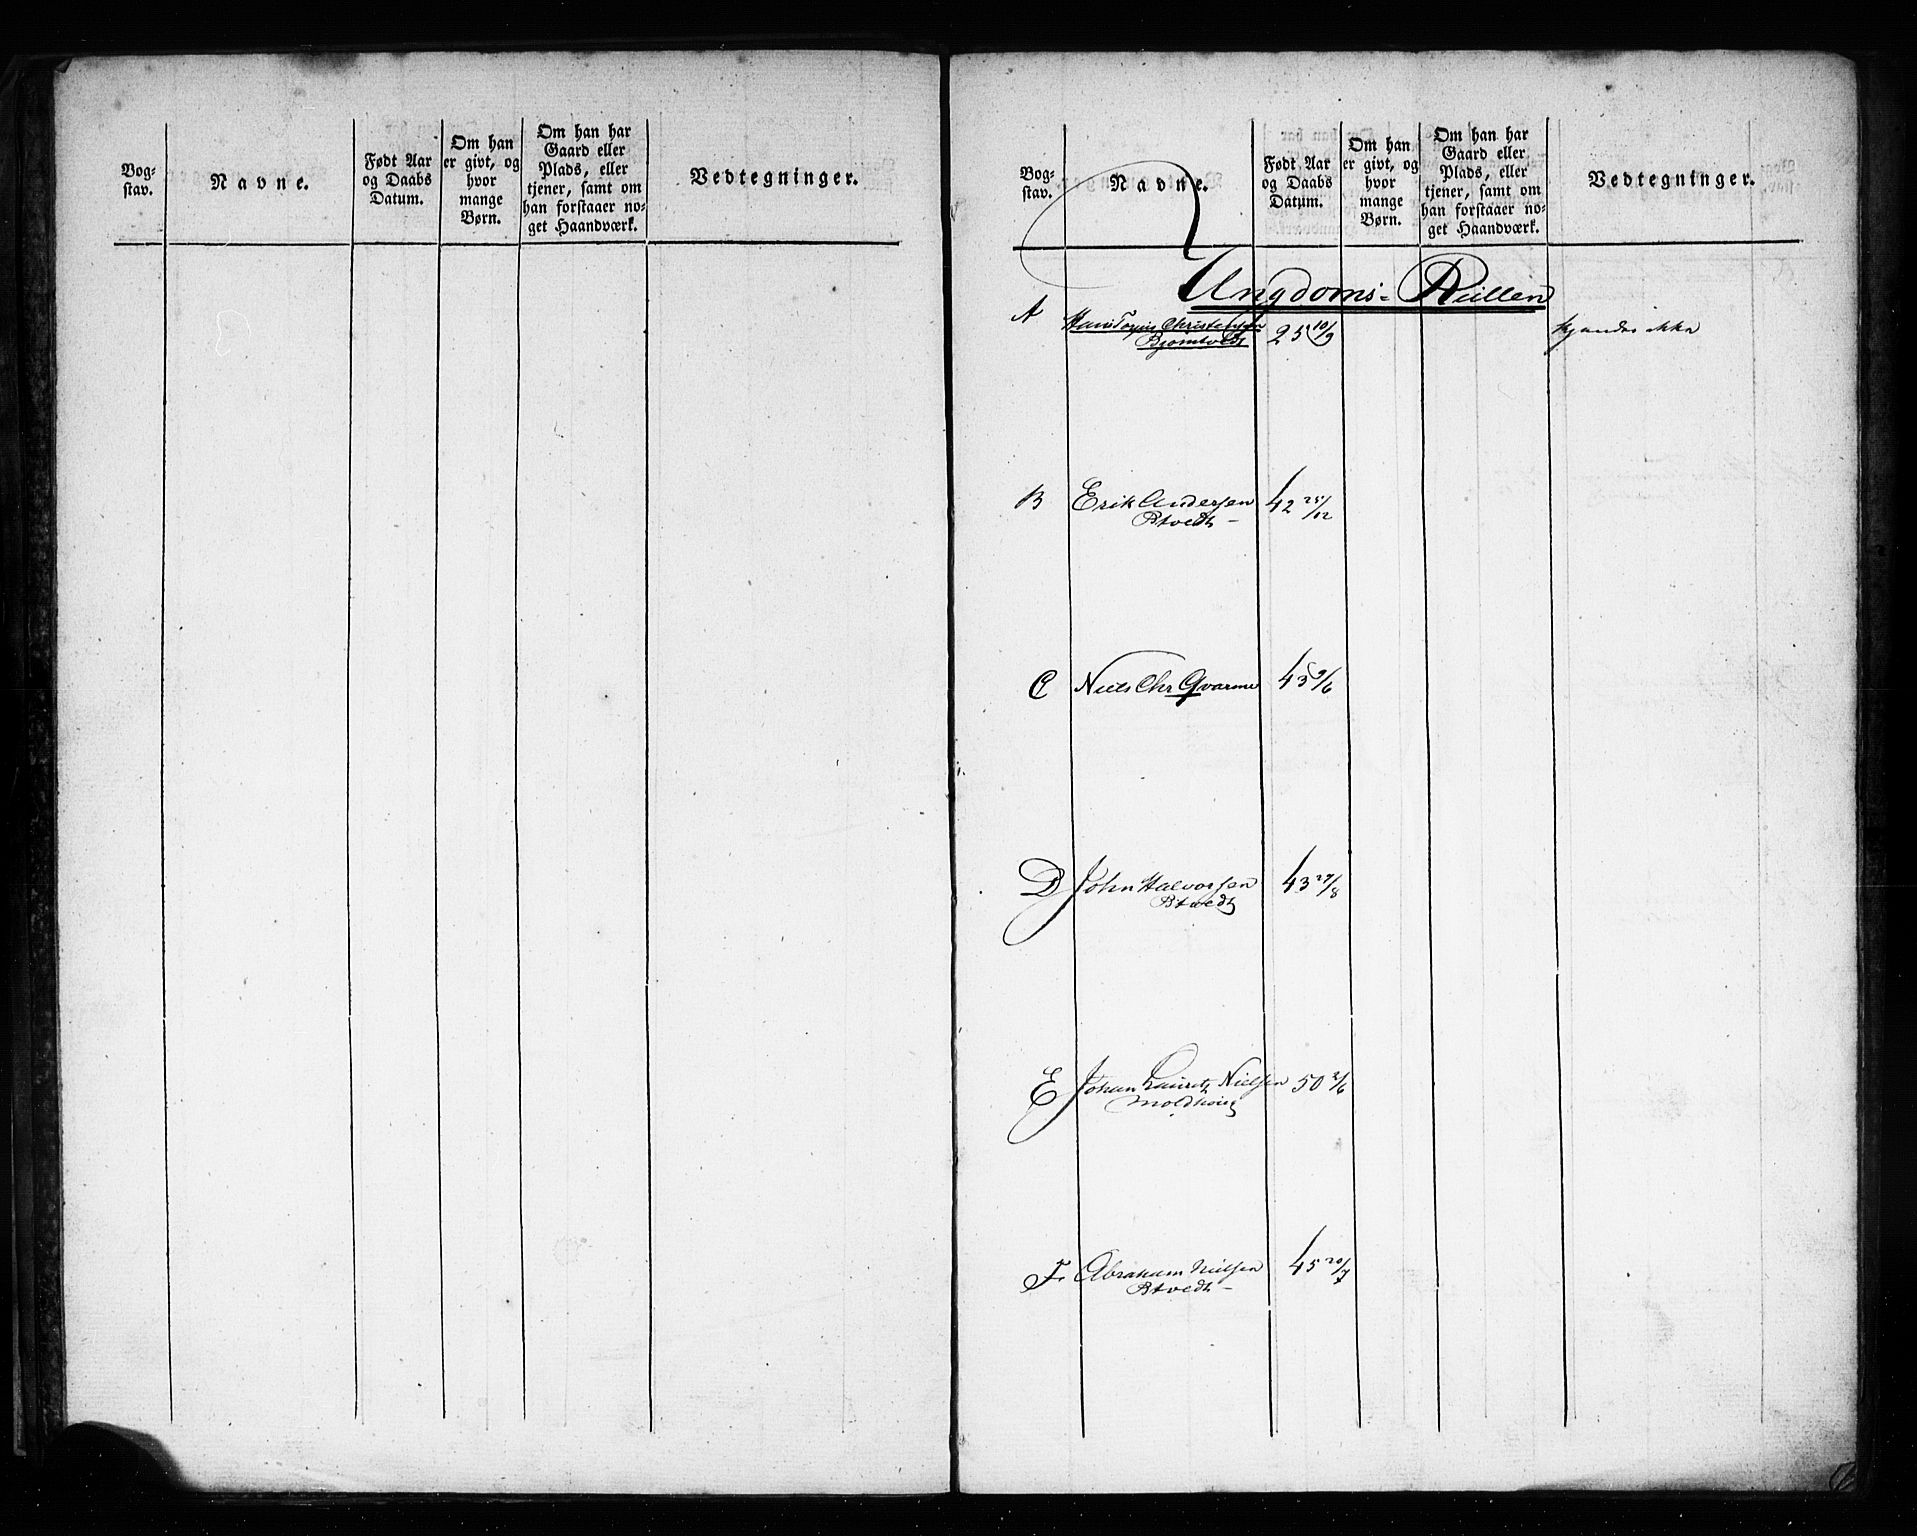 Bog-
stav.
Navne.
Født Aar
og Daabs
Datum.
Om han
er givt, og
hvor
mange
Børn.
Om han har
Gaard eller
Plads, eller
tjener, samt om
han forstaaer no-
get Haandværk.
Vedtegninger.
Bog-
stav.
Navne.
Født Aar
og Daabs
Datum.
Om han
er givt, og
hvor
mange
Børn.
Om han har
Gaard eller
Plads, eller
tjener, samt om
han forstaaer no-
get Haandværk.
Vedtegninger.
Ungdoms-Rullen
A Hans Christensen 25 10/9 kjendes ikke
Bjømtvedt
B Erik Andersen 42 25/12
Btvedt -
C Niels Chr Qvarme 43 9/6
D John Halvorsen 43 27/8
Btvedt
E Johan Lauritz Nielsen 50 2/6
F. Abraham Nielsen 45 20/7
Btvedt -